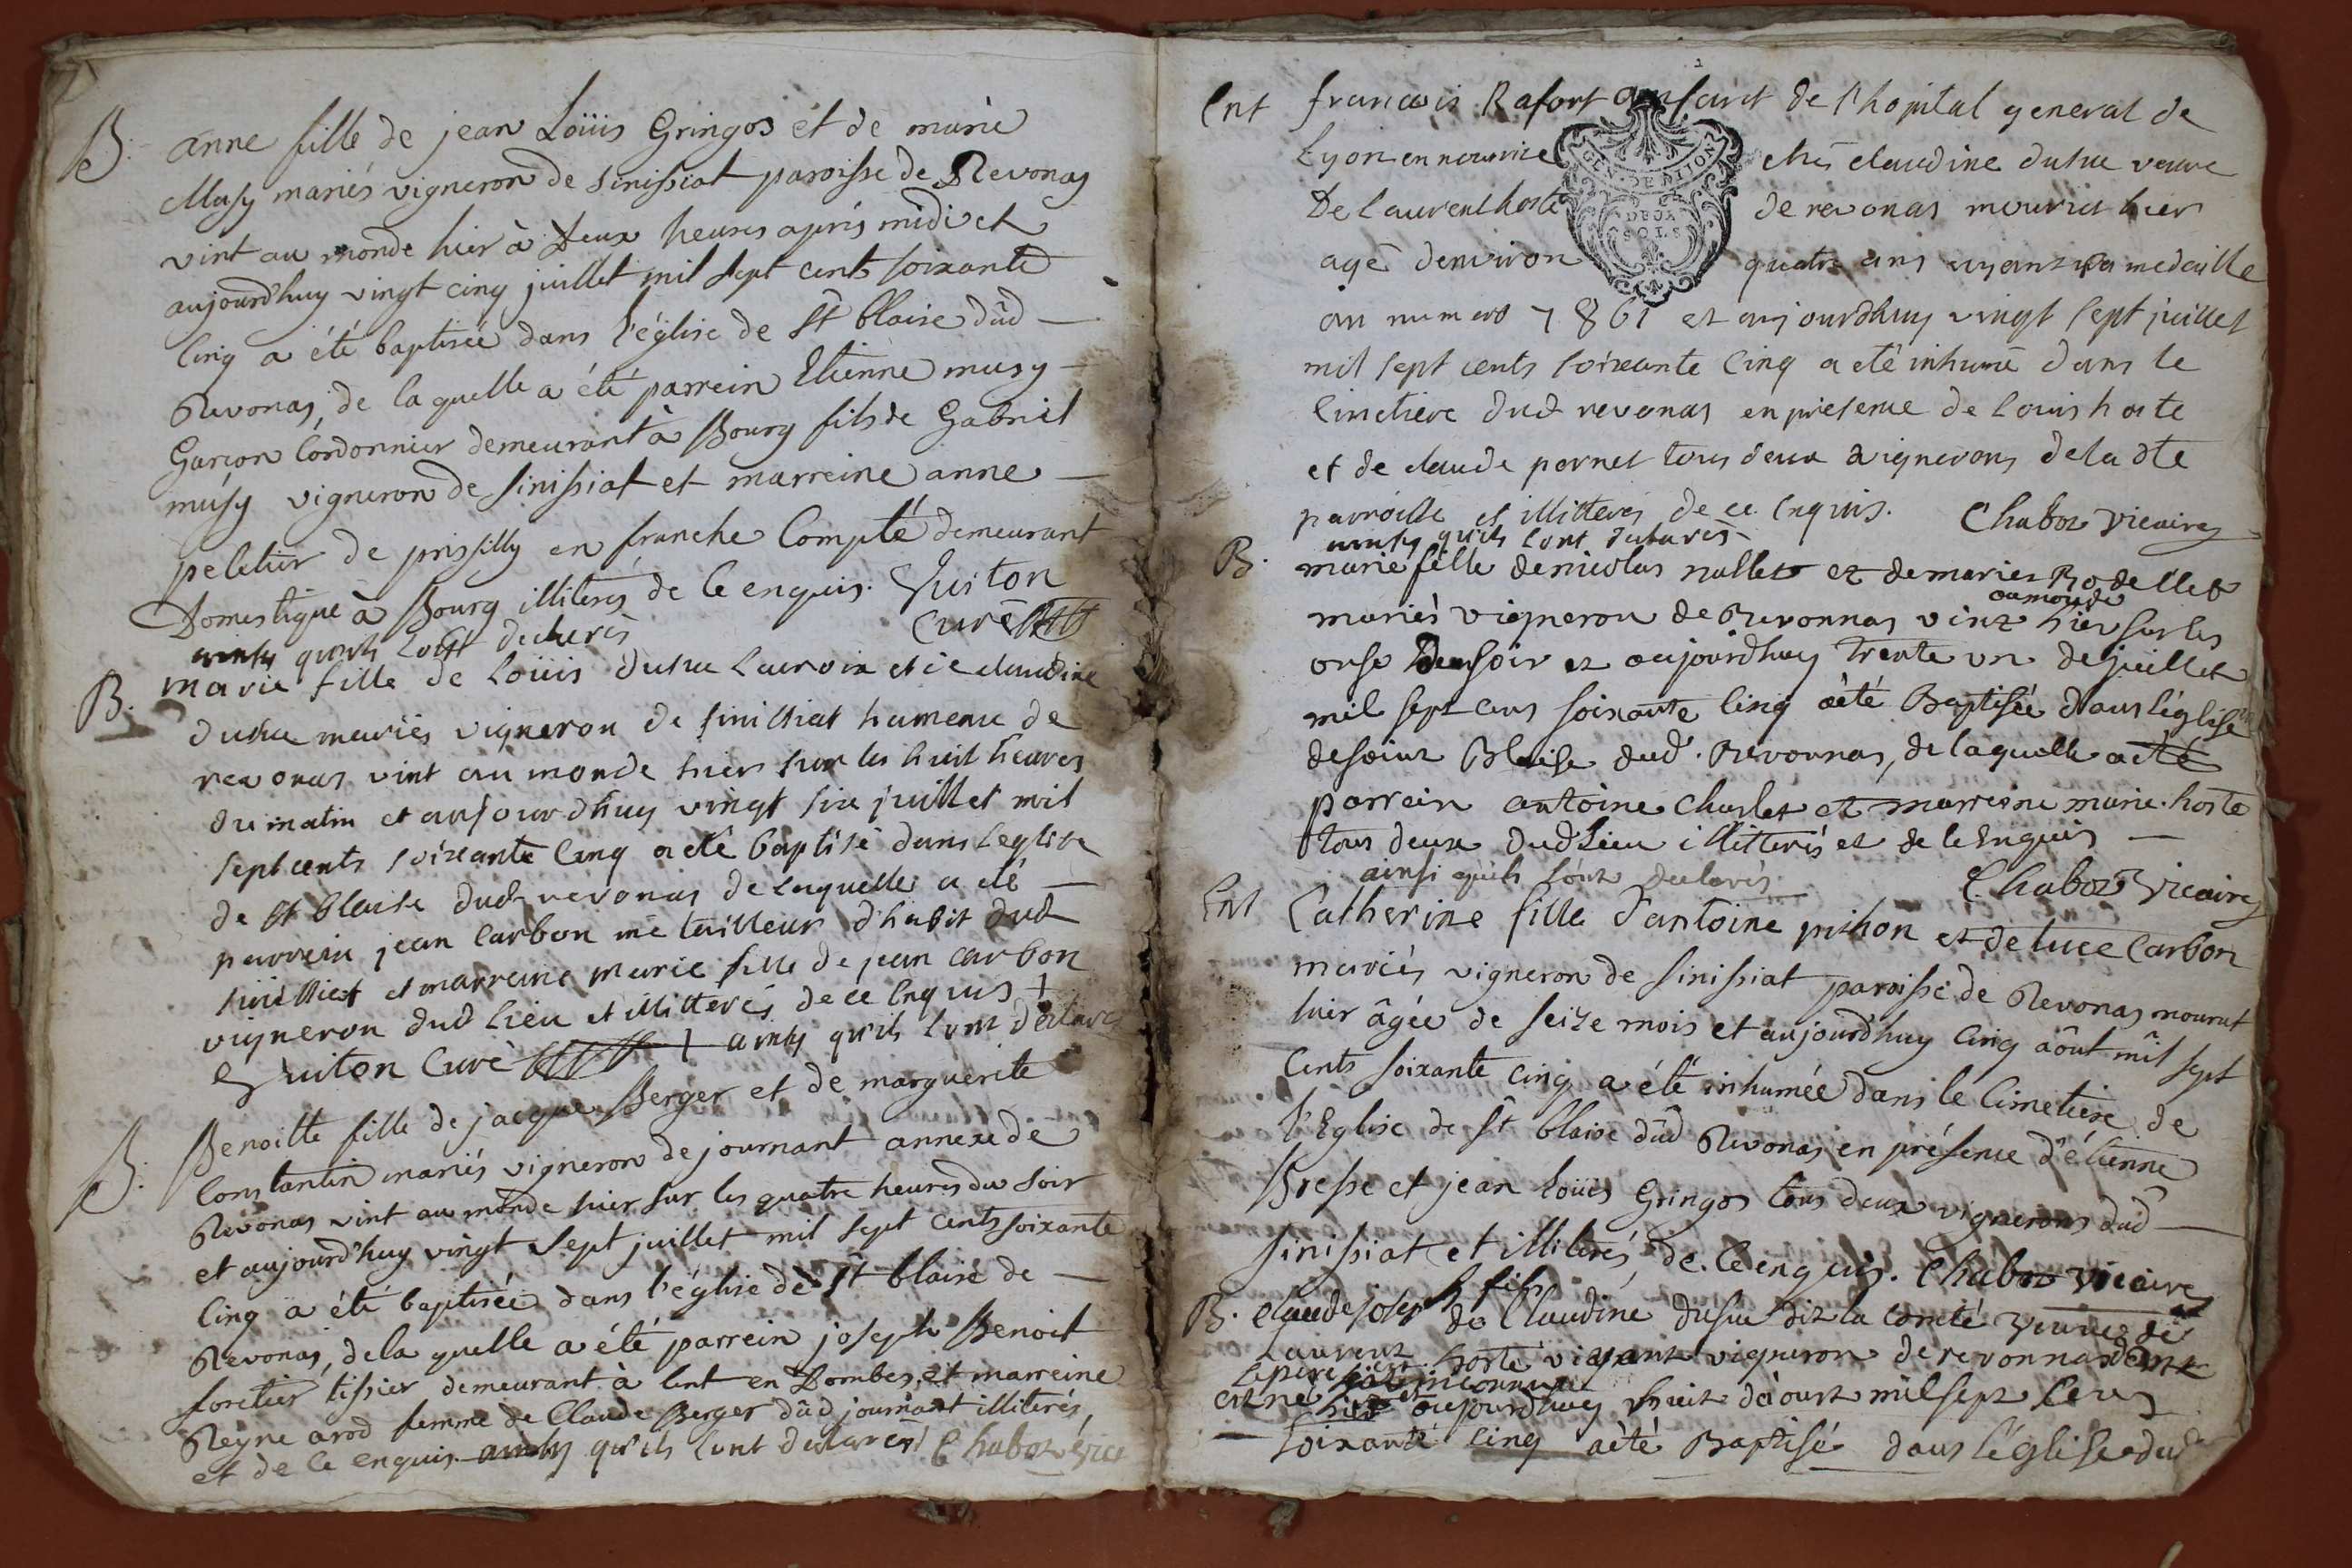 B. anne fille de jean Loüis Gringos et de marie
Musy mariés vigneron de sinissiat paroisse de Revonas
vint au monde hier à deux heures aprés midi et
aujourd'huy vingt cinq juillet mil sept cents soixante
cinq a été baptisée dans l'église de St blaise dud
Revonas, de laquelle a été parrein Etienne musy
Garçon Cordonnier demeurant à Bourg fils de Gabriel
musy vigneron de sinissiat et marreine anne
peletier de prissilly en franche Compté demeurant
Domestique à Bourg illiterés de ce enquis. Guiton
ainsy qu'ils sont declarés curé
B. marie fille de Loüis dusue lacroix et de claudine
dusue mariés vigneron de sinissiat hameau de
revonas vint au monde hier sur les huit heures
du matin et aujourdhuy vingt six juillet mil
sept cents soixante cinq a eté baptisé dans leglise
de st blaise dud revonas de laquelle a eté
parrein jean carbon me tailleur d'habit dud
sinissiat et marreine marie fille de jean carbon
vigneron dud lieu et illitterés de ce enquis +
Guiton curé + ainsy qu'ils sont declarés
B. Benoitte fille de jacque Berger et de marguerite
Constantin mariés vigneron de journant annexe de
Revonas vint au monde hier sur les quatre heures du soir
et aujourd'huy vingt sept juillet mil sept cents soixante
cinq a été baptisée dans l'église de St blaise de
Revonas, de la quelle a été parrein joseph Benoit
foretier tissier demeurant à lent en Dombes, et marreine
Reyne arod femme de Claude Berger dud journant illiterés,
et de ce enquis. ainsy qu'ils sont declarés Chaboz vice
Ent françois Rafort enfant de l'hopital general de
Lyon en nourrice chés claudine dusue veuve
De laurent hoste de revonas mourut hier
agé denviron quatre ans ayant sa medaille
GEN. DE DIJON
DEUX
SOLS
au numero 7861 et aujourdhuy vingt sept juillet
mil sept cents soixante cinq a eté inhumé dans le
cimetiere dud revonas en presence de louis hoste
et de claude pernet tous deux vignerons de la dte
parroisse et illitterés de ce enquis. Chaboz vicaire
ainsy qu'ils sont declarés
B. marie fille de nicolas nallet et de marie Rodellet
mariés vigneron de Revonnas vint au monde hier sur les
onse du soir et aujourdhuy trente un de juillet
mil sept cens soixante cinq a été Baptisée dans léglise
de saint Blaise dud. Revonnas, de laquelle a été
parrein antoine charlet et marreine marie hoste
tous deux dud Lieu illitterés et de ce enquis
ainsi qu'ils sont declarés Chaboz vicaire
Ent Catherine fille d'antoine pithon et de luce Carbon
mariés vigneron de sinissiat paroisse de Revonas mourut
hier âgée de seize mois et aujourd'huy cinq aôut mil sept
cents soixante cinq a été inhumée dans le cimetiere de
l'Eglise de St blaise dud Revonas en présence d'étienne
Bresse et jean loüis Gringos tous deux vignerons dud
sinissiat et illiterés de ce enquis. Chaboz vicaire
B. claude joseph fils de Claudine dusue dit la comté veuve de
laurent hoste vivant vigneron de revonnas dont
le pere est inconnu
est né hier et aujourdhuy huit d'aoust mil sept cens
soixante cinq a été Baptisé dans léglise dud